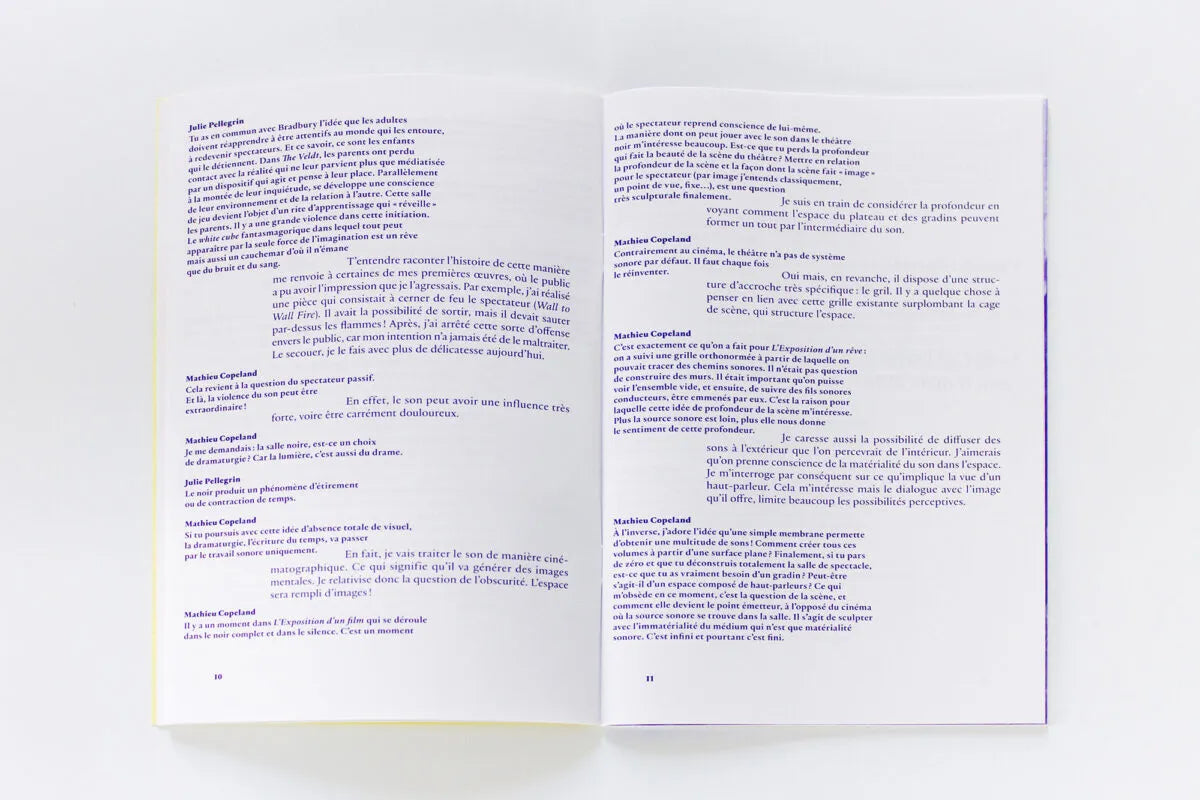 Julie Pellegrin
Tu as en commun avec Bradbury l'idée que les adultes
doivent réapprendre à être attentifs au monde qui les entoure,
à redevenir spectateurs. Et ce savoir, ce sont les enfants
qui le détiennent. Dans The Veldt, les parents ont perdu
contact avec la réalité qui ne leur parvient plus que médiatisée
par un dispositif qui agit et pense à leur place. Parallèlement
à la montée de leur inquiétude, se développe une conscience
de leur environnement et de la relation à l'autre. Cette salle
de jeu devient l'objet d'un rite d'apprentissage qui « réveille »
les parents. Il y a une grande violence dans cette initiation.
Le white cube fantasmagorique dans lequel tout peut
apparaître par la seule force de l'imagination est un rêve
mais aussi un cauchemar d'où il n'émane
que du bruit et du sang.
T'entendre raconter l'histoire de cette manière
me renvoie à certaines de mes premières œuvres, où le public
a pu avoir l'impression que je l'agressais. Par exemple, j'ai réalisé
une pièce qui consistait à cerner de feu le spectateur (Wall to
Wall Fire). Il avait la possibilité de sortir, mais il devait sauter
par-dessus les flammes ! Après, j'ai arrêté cette sorte d'offense
envers le public, car mon intention n'a jamais été de le maltraiter.
Le secouer, je le fais avec plus de délicatesse aujourd'hui.
Mathieu Copeland
Cela revient à la question du spectateur passif.
Et là, la violence du son peut être
extraordinaire !
En effet, le son peut avoir une influence très
forte, voire être carrément douloureux.
Mathieu Copeland
Je me demandais : la salle noire, est-ce un choix
de dramaturgie ? Car la lumière, c'est aussi du drame.
Julie Pellegrin
Le noir produit un phénomène d'étirement
ou de contraction de temps.
Mathieu Copeland
Si tu poursuis avec cette idée d'absence totale de visuel,
la dramaturgie, l'écriture du temps, va passer
par le travail sonore uniquement.
En fait, je vais traiter le son de manière ciné-
matographique. Ce qui signifie qu'il va générer des images
mentales. Je relativise donc la question de l'obscurité. L'espace
sera rempli d'images !
Mathieu Copeland
Il y a un moment dans L'Exposition d'un film qui se déroule
dans le noir complet et dans le silence. C'est un moment
10
où le spectateur reprend conscience de lui-même.
La manière dont on peut jouer avec le son dans le théâtre
noir m'intéresse beaucoup. Est-ce que tu perds la profondeur
qui fait la beauté de la scène du théâtre ? Mettre en relation
la profondeur de la scène et la façon dont la scène fait « image »
pour le spectateur (par image j'entends classiquement,
un point de vue, fixe…), est une question
très sculpturale finalement.
Je suis en train de considérer la profondeur en
voyant comment l'espace du plateau et des gradins peuvent
former un tout par l'intermédiaire du son.
Mathieu Copeland
Contrairement au cinéma, le théâtre n'a pas de système
sonore par défaut. Il faut chaque fois
le réinventer.
Oui mais, en revanche, il dispose d'une struc-
ture d'accroche très spécifique : le gril. Il y a quelque chose à
penser en lien avec cette grille existante surplombant la cage
de scène, qui structure l'espace.
Mathieu Copeland
C'est exactement ce qu'on a fait pour L'Exposition d'un rêve :
on a suivi une grille orthonormée à partir de laquelle on
pouvait tracer des chemins sonores. Il n'était pas question
de construire des murs. Il était important qu'on puisse
voir l'ensemble vide, et ensuite, de suivre des fils sonores
conducteurs, être emmenés par eux. C'est la raison pour
laquelle cette idée de profondeur de la scène m'intéresse.
Plus la source sonore est loin, plus elle nous donne
le sentiment de cette profondeur.
Je caresse aussi la possibilité de diffuser des
sons à l'extérieur que l'on percevrait de l'intérieur. J'aimerais
qu'on prenne conscience de la matérialité du son dans l'espace.
Je m'interroge par conséquent sur ce qu'implique la vue d'un
haut-parleur. Cela m'intéresse mais le dialogue avec l'image
qu'il offre, limite beaucoup les possibilités perceptives.
Mathieu Copeland
À l'inverse, j'adore l'idée qu'une simple membrane permette
d'obtenir une multitude de sons ! Comment créer tous ces
volumes à partir d'une surface plane ? Finalement, si tu pars
de zéro et que tu déconstruis totalement la salle de spectacle,
est-ce que tu as vraiment besoin d'un gradin ? Peut-être
s'agit-il d'un espace composé de haut-parleurs ? Ce qui
m'obsède en ce moment, c'est la question de la scène, et
comment elle devient le point émetteur, à l'opposé du cinéma
où la source sonore se trouve dans la salle. Il s'agit de sculpter
avec l'immatérialité du médium qui n'est que matérialité
sonore. C'est infini et pourtant c'est fini.
11